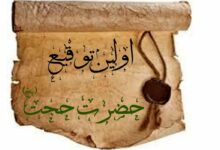 اولین توقیع
حضرت حجت (عج)